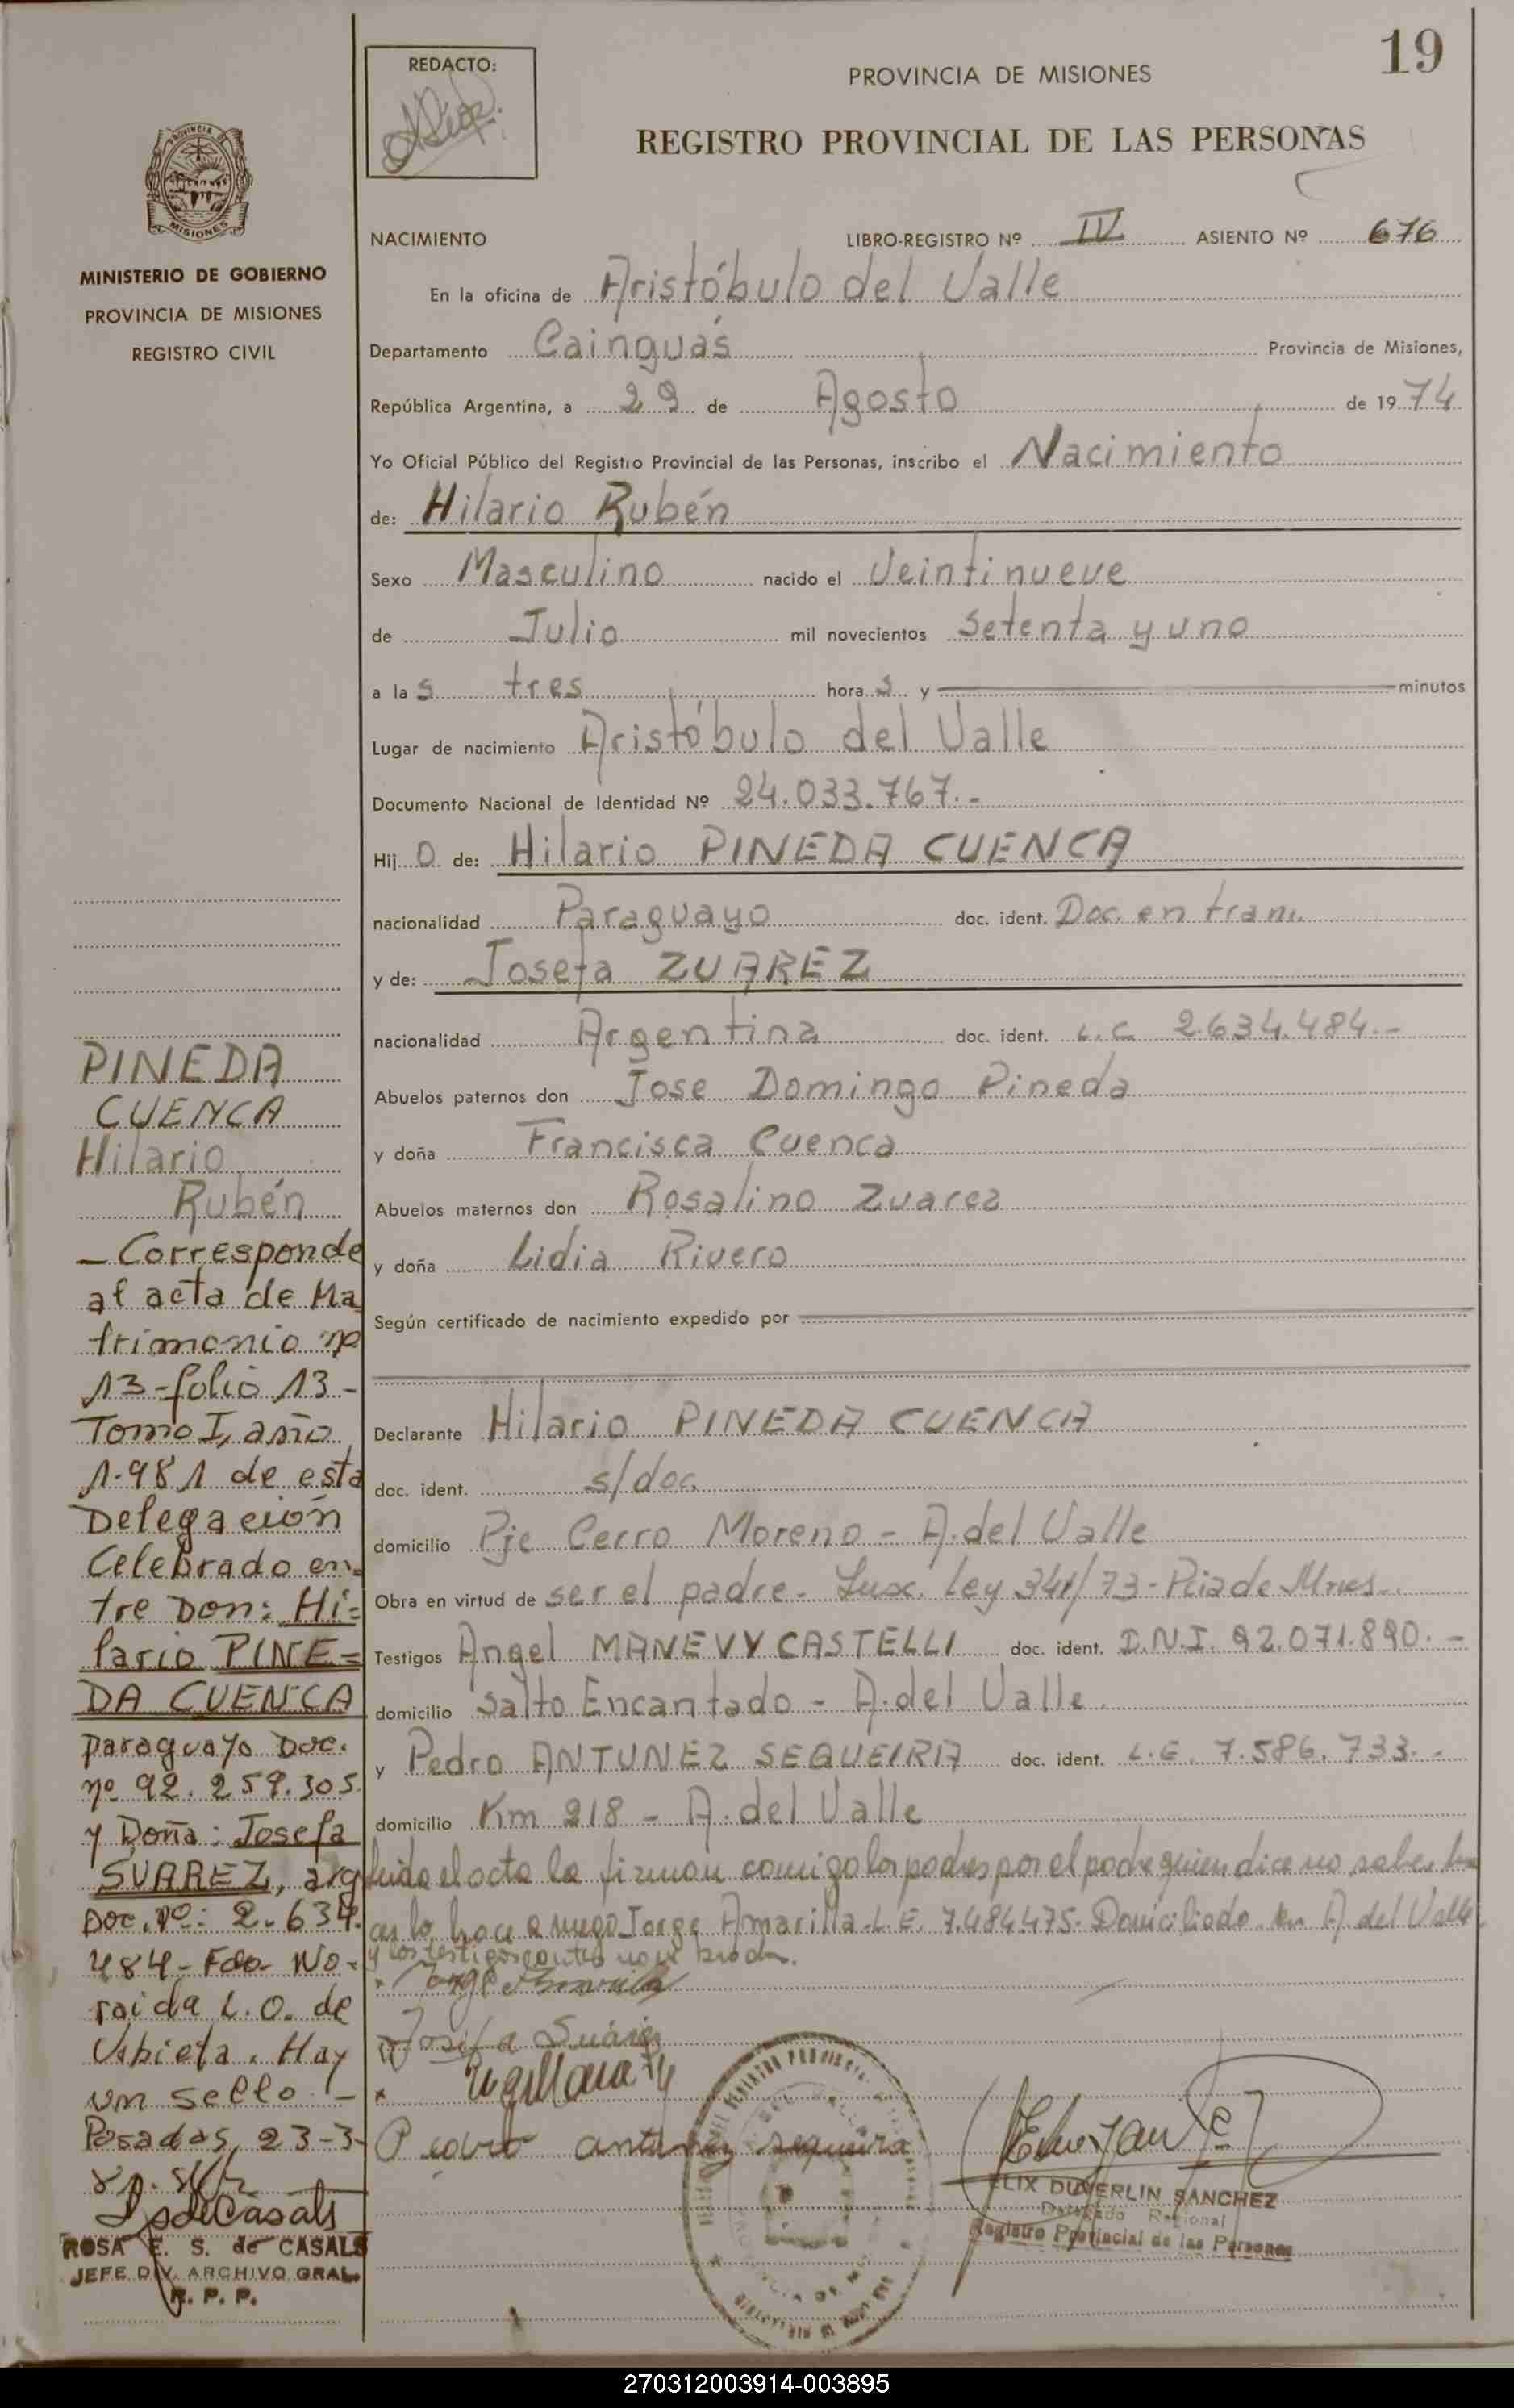 19
REDACTO:
PROVINCIA DE MISIONES
REGISTRO PROVINCIAL DE LAS PERSONAS
MINISTERIO DE GOBIERNO
PROVINCIA DE MISIONES
REGISTRO CIVIL
NACIMIENTO LIBRO-REGISTRO Nº IV ASIENTO Nº 676
En la oficina de Aristóbulo del Valle
Departamento Cainguás Provincia de Misiones,
República Argentina, a 29 de Agosto de 1974
Yo Oficial Público del Registro Provincial de las Personas, inscribo el Nacimiento
de: Hilario Rubén
Sexo Masculino nacido el Veintinueve
de Julio mil novecientos Setenta y uno
a las tres horas y minutos
Lugar de nacimiento Aristóbulo del Valle
Documento Nacional de Identidad Nº 24.033.767.-
Hijo de: Hilario PINEDA CUENCA
nacionalidad Paraguayo doc. ident. Doc. en tram.
y de: Josefa ZUAREZ
nacionalidad Argentina doc. ident. L.C 2.634.484.-
Abuelos paternos don Jose Domingo Pineda
y doña Francisca Cuenca
Abuelos maternos don Rosalino Zuarez
y doña Lidia Rivero
Según certificado de nacimiento expedido por
Declarante Hilario PINEDA CUENCA
doc. ident. s/doc.
domicilio Pje Cerro Moreno - A. del Valle
Obra en virtud de ser el padre. Ley 341/73 - Pcia de Mnes.
Testigos Angel MANEVY CASTELLI doc. ident. D.N.I. 92.071.890.-
domicilio Salto Encantado - A. del Valle.
y Pedro ANTUNEZ SEQUEIRA doc. ident. L.E. 7.586.733.-
domicilio Km 218 - A. del Valle
leida el acta la firman comigo los padres por el padre quien dice no saber
lo hace a ruego Jorge Amarilla L.E. 7.484.475- Domiciliado en A del Valle
y los testigos
Jorge Amarilla
Josefa Suárez
Pedro antunez sequeira
FELIX DUVERLIN SANCHEZ
Delegado Regional
Registro Provincial de las Personas
PINEDA
CUENCA
Hilario
Rubén
- Corresponde
al acta de Ma
trimonio nº
13-folio 13-
Tomo I, año
1.981 de esta
Delegación
Celebrado en-
tre Don: Hi=
lario PINE=
DA CUENCA
paraguayo Doc.
nº 92.259.305
y Doña: Josefa
SUAREZ, arg
Doc. Nº: 2.634.
484- Fdo- No-
raida L.O. de
Usbieta. Hay
un sello.-
Posadas, 23-3-
ROSA E. S. de CASALS
JEFE DIV. ARCHIVO GRAL.
R. P. P.
270312003914-003895